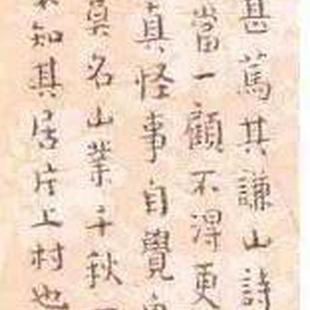 甚篤其謙山詩
當一顧不得更
真怪事自覺
真名山業千秋
知其居片上村也